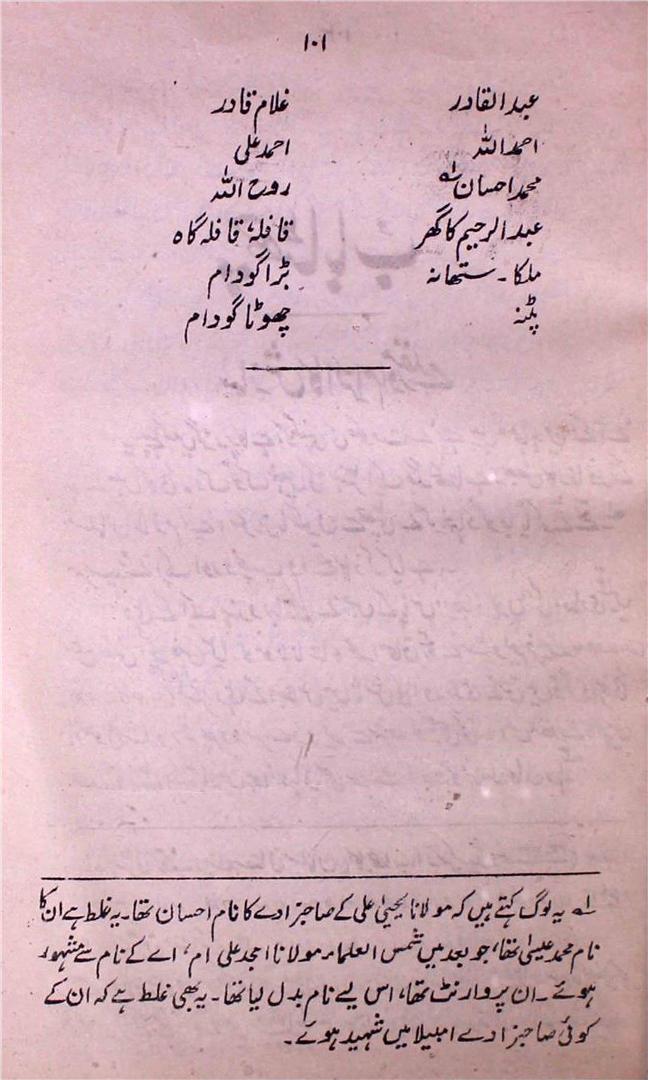 ۱۰۱
عبدالقادر غلام قادر
احمداللہ احمد علی
محمد احسان لہ روح اللہ
عبدالرحیم کا گھر قافلہ، قافلہ گاہ
ملکا۔ستھانہ بڑا گودام
پٹنہ چھوٹا گودام
لہ یہ لوگ کہتے ہیں کہ مولانا یحییٰ علی کے صاحبزادے کا نام احسان تھا۔ یہ غلط ہے ان کا
نام محمد عیسیٰ تھا، جو بعد میں شمس العلماء مولانا امجد علی ام، اے کے نام سے مشہور
ہوئے۔ ان پر وارنٹ تھا، اس لیے نام بدل لیا تھا۔ یہ بھی غلط ہے کہ ان کے
کوئی صاحبزادے امبیلا میں شہید ہوئے۔